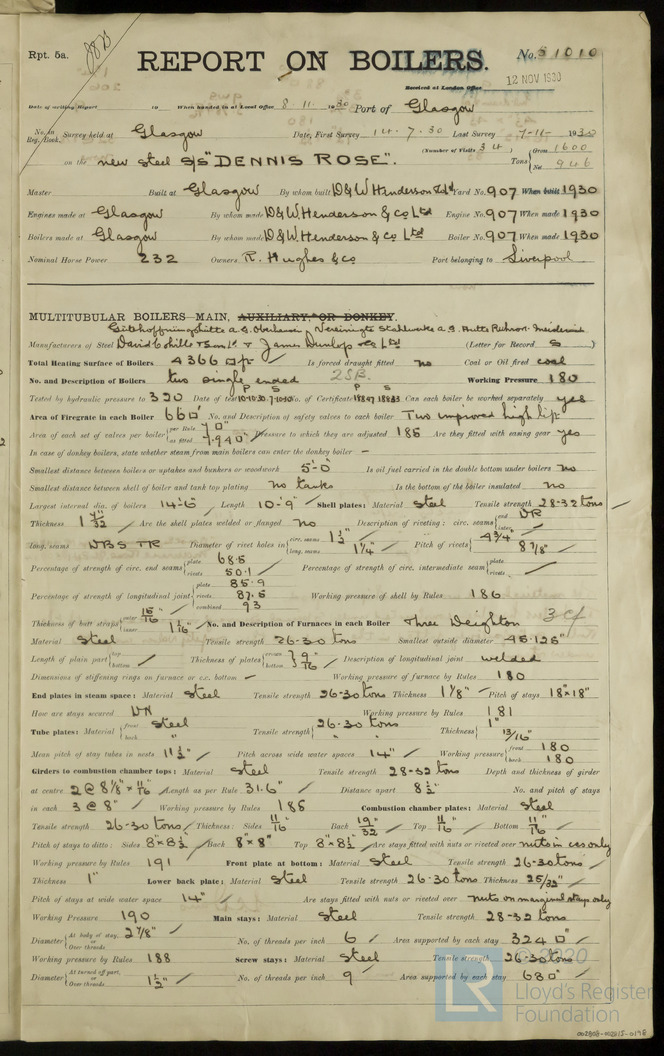 Rpt. 5a.
REPORT ON BOILERS.
No. 51010
Received at London Office
12 NOV 1930
Date of writing Report 19 When handed in at Local Office 8.11.1930 Port of Glasgow
No. in Reg. Book. Survey held at Glasgow Date, First Survey 14.7.30 Last Survey 7-11-1930
(Number of Visits 34)
on the new steel S/S "DENNIS ROSE". Tons { Gross 1600 Net 946
Master Built at Glasgow By whom built D & W Henderson Ltd Yard No. 907 When built 1930
Engines made at Glasgow By whom made D & W Henderson & Co Ltd Engine No. 907 When made 1930
Boilers made at Glasgow By whom made D & W Henderson & Co Ltd Boiler No. 907 When made 1930
Nominal Horse Power 232 Owners R. Hughes & Co Port belonging to Liverpool
MULTITUBULAR BOILERS—MAIN, AUXILIARY, OR DONKEY.
Manufacturers of Steel David Colville & Sons Ld & James Dunlop & Co Ltd (Letter for Record S)
Total Heating Surface of Boilers 4366 □ft Is forced draught fitted no Coal or Oil fired coal
No. and Description of Boilers two single ended 2SB. Working Pressure 180
Tested by hydraulic pressure to 320 Date of test No. of Certificate Can each boiler be worked separately yes
Area of Firegrate in each Boiler 66□' No. and Description of safety valves to each boiler Two improved high lift
Area of each set of valves per boiler { per Rule as fitted 7.940" Pressure to which they are adjusted 185 Are they fitted with easing gear yes
In case of donkey boilers, state whether steam from main boilers can enter the donkey boiler –
Smallest distance between boilers or uptakes and bunkers or woodwork 5'-0" Is oil fuel carried in the double bottom under boilers no
Smallest distance between shell of boiler and tank top plating no tanks Is the bottom of the boiler insulated no
Largest internal dia. of boilers 14'-6" Length 10'-9" Shell plates: Material Steel Tensile strength 28-32 tons
Thickness Are the shell plates welded or flanged no Description of riveting: circ. seams { end DR inter.
long. seams DBS TR Diameter of rivet holes in { circ. seams 1½" long. seams 1¼" Pitch of rivets { 4¾" 8⅞"
Percentage of strength of circ. end seams { plate 68.5 rivets 50.1 Percentage of strength of circ. intermediate seam { plate rivets
Percentage of strength of longitudinal joint { plate 85.9 rivets 87.5 combined 93 Working pressure of shell by Rules 186
Thickness of butt straps { outer 15/16" inner 1 1/16" No. and Description of Furnaces in each Boiler Three Deighton 3cf
Material Steel Tensile strength 26-30 tons Smallest outside diameter 45.125"
Length of plain part { top bottom Thickness of plates { crown bottom } 9/16" Description of longitudinal joint welded
Dimensions of stiffening rings on furnace or c.c. bottom – Working pressure of furnace by Rules 180
End plates in steam space: Material Steel Tensile strength 26-30 tons Thickness 1⅛" Pitch of stays 18"x18"
How are stays secured DN Working pressure by Rules 181
Tube plates: Material { front Steel back " Tensile strength { 26-30 tons " " Thickness { 1" 13/16"
Mean pitch of stay tubes in nests 11½" Pitch across wide water spaces 14" Working pressure { front 180 back 180
Girders to combustion chamber tops: Material Steel Tensile strength 28-32 tons Depth and thickness of girder
at centre 2 @ 8⅞" x 11/16 Length as per Rule 31.6" Distance apart 8½" No. and pitch of stays
in each 3 @ 8" Working pressure by Rules 185 Combustion chamber plates: Material Steel
Tensile strength 26-30 tons Thickness: Sides 11/16" Back 19/32" Top 11/16" Bottom 11/16"
Pitch of stays to ditto: Sides 8"x8½" Back 8"x8" Top 8"x8½" Are stays fitted with nuts or riveted over nuts in ccs only
Working pressure by Rules 191 Front plate at bottom: Material Steel Tensile strength 26-30 tons
Thickness 1" Lower back plate: Material Steel Tensile strength 26-30 tons Thickness 25/32"
Pitch of stays at wide water space 14" Are stays fitted with nuts or riveted over nuts on marginal stays only
Working Pressure 190 Main stays: Material Steel Tensile strength 28-32 tons
Diameter { At body of stay, or Over threads 2⅞" No. of threads per inch 6 Area supported by each stay 324□"
Working pressure by Rules 188 Screw stays: Material Steel Tensile strength 26-30 tons
Diameter { At turned off part, or Over threads 1½" No. of threads per inch 9 Area supported by each stay 680"
© 2020
LR
Lloyd's Register
Foundation
002808-002815-0198